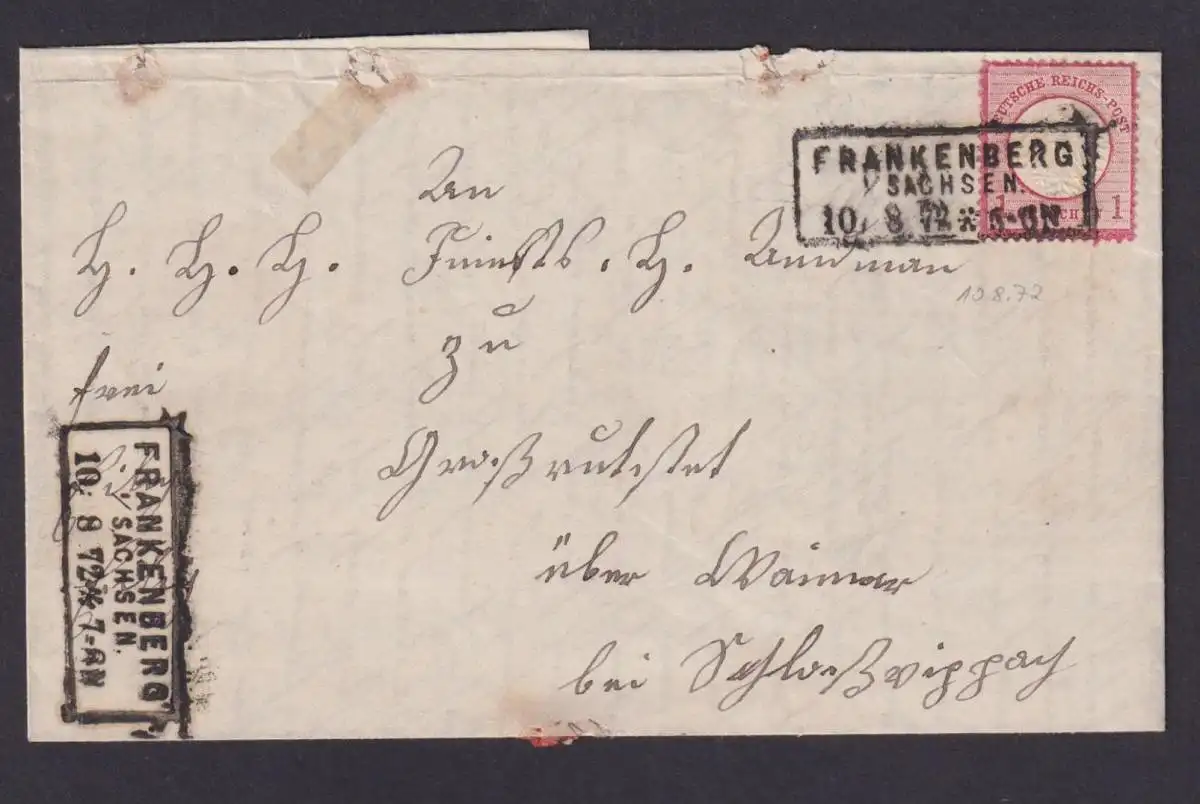 DEUTSCHE REICHS-POST
1 1
FRANKENBERG
SACHSEN.
10 8 72 *
An
H. H. H. H.
zu
10.8.72
frei
Großrudestet
über Weimar
bei Schloßvippach
FRANKENBERG
SACHSEN.
10 8 72 * 7-8N